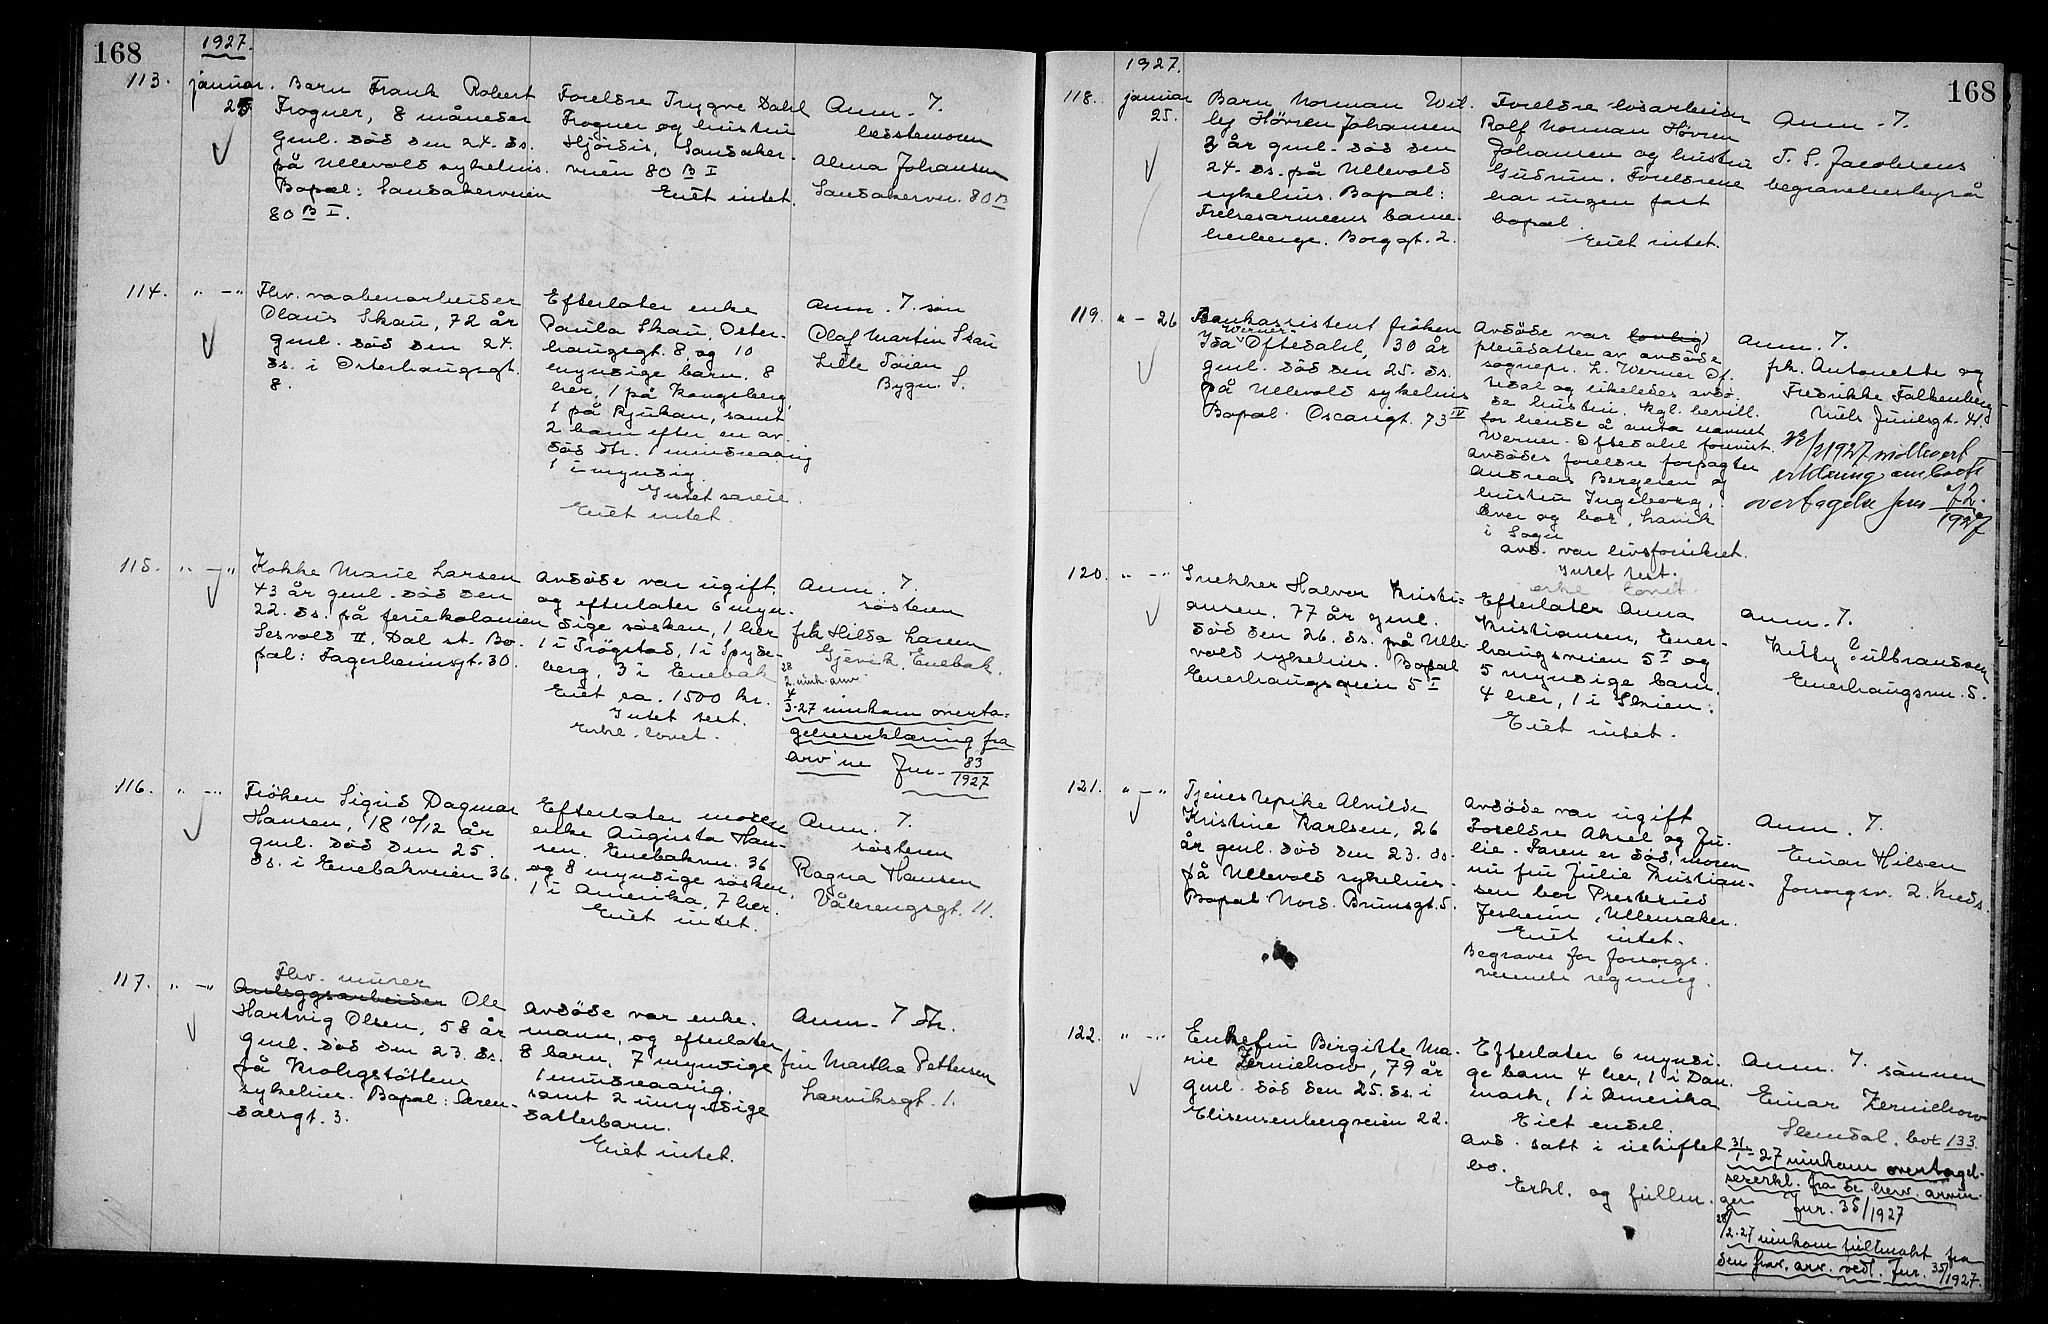 168
1927.
113.
januar.
25
Barn Frank Robert
Frogner, 8 måneder
gml. död den 24. ds.
på Ullevold sykehus.
Bopæl: Sandakerveien
80 B I.
Foreldre Trygve Dahl
Frogner og hustru
Hjördis, Sandaker-
veien 80 B I
Eiet intet.
Anm. T.
bestemoren
Alma Johansen
Sandakervei. 80 B
114. " — "
Fhv. vaabenarbeider
Olaus Skau, 72 år
gml. död den 24.
ds. i Osterhaugsgt.
8.
Efterlater enke
Paula Skau, Oster-
haugsgt. 8, og 10
myndige barn. 8
her, 1 på Kongsberg,
1 på Rjukan, samt
2 barn efter en av-
död dtr. 1 mindreaarig
1 myndig.
Intet særeie.
Eiet intet.
Anm. T. sön
Olaf Martin Skau
Lille Töien
Bygn. S.
115. " — "
Kokke Marie Larsen
43 år gml. död den
22. ds. på feriekolonien
Sesvold II. Dal st. Bo-
pæl: Fagerheimsgt. 30.
Avdöde var ugift
og efterlater 6 myn-
dige sösken, 1 her
1 i Trögstad, 1 i Spyde-
berg, 3 i Enebak
Eiet ca. 1500 kr.
Intet test.
Erkl. lovet.
Anm. T.
sösteren
frk Hilda Larsen
Gjevik, Enebak.
3-27 innkom overta-
gelseserklæring fra
arv'ne Jnr. 83/1927
116. " — "
Fröken Sigrid Dagmar
Hansen, 18 10/12 år
gml. död den 25.
ds. i Enebakveien 36.
Efterlater moren
enke Augusta Han-
sen. Enebakvn. 36
og 8 myndige sösken,
1 i Amerika, 7 her.
Eiet intet.
Anm. T.
sösteren
Ragna Hansen
Vålerengsgt. 11.
117. " — "
Fhv. murer
Anleggsarbeider Ole
Hartvig Olsen, 58 år
gml. död den 23. ds.
på Krohgstöttens
sykehus. Bopæl: Aren-
dalsgt. 3.
Avdöde var enke-
mann, og efterlater
8 barn, 7 myndige
1 mindreaarig,
samt 2 umyndige
datterbarn.
Eiet intet.
Anm. T dtr.
fru Martha Pettersen
Larviksgt. 1.
1927.
168
118.
januar
25.
Barn Norman Wil-
ly Hövren Johansen
3 år gml. död den
24. ds. på Ullevold
sykehus. Bopæl:
Frelsesarmeens barne-
herberge. Borggt. 2.
Foreldre losarbeider
Rolf Norman Hövren
Johansen og hustru
Gudrun. Foreldrene
har ingen fast
bopæl.
Eiet intet.
Anm. T.
T. S. Jacobsens
begravelsesbyrå
119. " — 26
Bankassistent fröken
Isa Werner-Oftedahl, 30 år
gml. död den 25. ds.
på Ullevold sykehus
Bopæl Oscarsgt. 73 IV
Avdöde var (lovlig)
pleiedatter av avdöde
sognepr. L. Werner Of-
tedal og likeledes avdö-
de hustru. Kgl. bevill.
for hende å anta navnet
Werner-Oftedahl
avdödes foreldre forpagter
Andreas Bergersen og
hustru Ingeborg,
lever og bor, Lavik
i Sogn
avd. var livsforsikret.
Intet test.
Anm. T.
frk. Antonette og
Fredrikke Falkenberg
Niels Juulsgt. 41.
23/2 1927 mottatt
erklæring om bo
overtagelse Jnr
1927
120. " — "
Snekker Halvor Kristi-
ansen. 77 år gml.
död den 26. ds. på Ulle-
vold sykehus. Bopæl
Enerhaugsveien 5 I
Efterlater Anna
Kristiansen, Ener-
haugsveien 5 I og
5 myndige barn.
4 her, 1 i Skien.
Eiet intet.
Anm. T.
Kitty Gulbrandsen
Enerhaugsvn. 5.
121. " — "
Tjenestepike Alvilde
Kristine Karlsen, 26
år gml. död den 23. ds.
på Ullevold sykehus.
Bopæl Nord. Brunsgt. 5.
Avdöde var ugift
Foreldre Aksel og Ju-
lie. Faren er död, moren
nu fru Julie Kristian-
sen bor Presterud
Jesheim, Ullensaker.
Eiet intet.
Begraves for forsorgs-
vesenets regning.
Anm. T.
Einar Nilsen
Forsorgsv. 2. kreds.
122. " — "
Enkefru Birgitte Ma-
rie Zernichow, 79 år
gml. död den 25. ds. i
Elisenbergveien 22.
Efterlater 6 myndi-
ge barn 4 her, 1 i Dan-
mark, 1 i Amerika
Eiet endel.
Avd. satt i uskiftet
bo.
Erkl. og fullm.
Anm. T. sönnen
Einar Zernichow
Slemdal, bot 133.
31/1-27 innkom overtagel-
seserkl. fra de herv. arvin-
ger Jnr. 35/1927
28/2-27 innkom fullmakt fra
den frav. arv. vedl. Jnr. 35/1927.